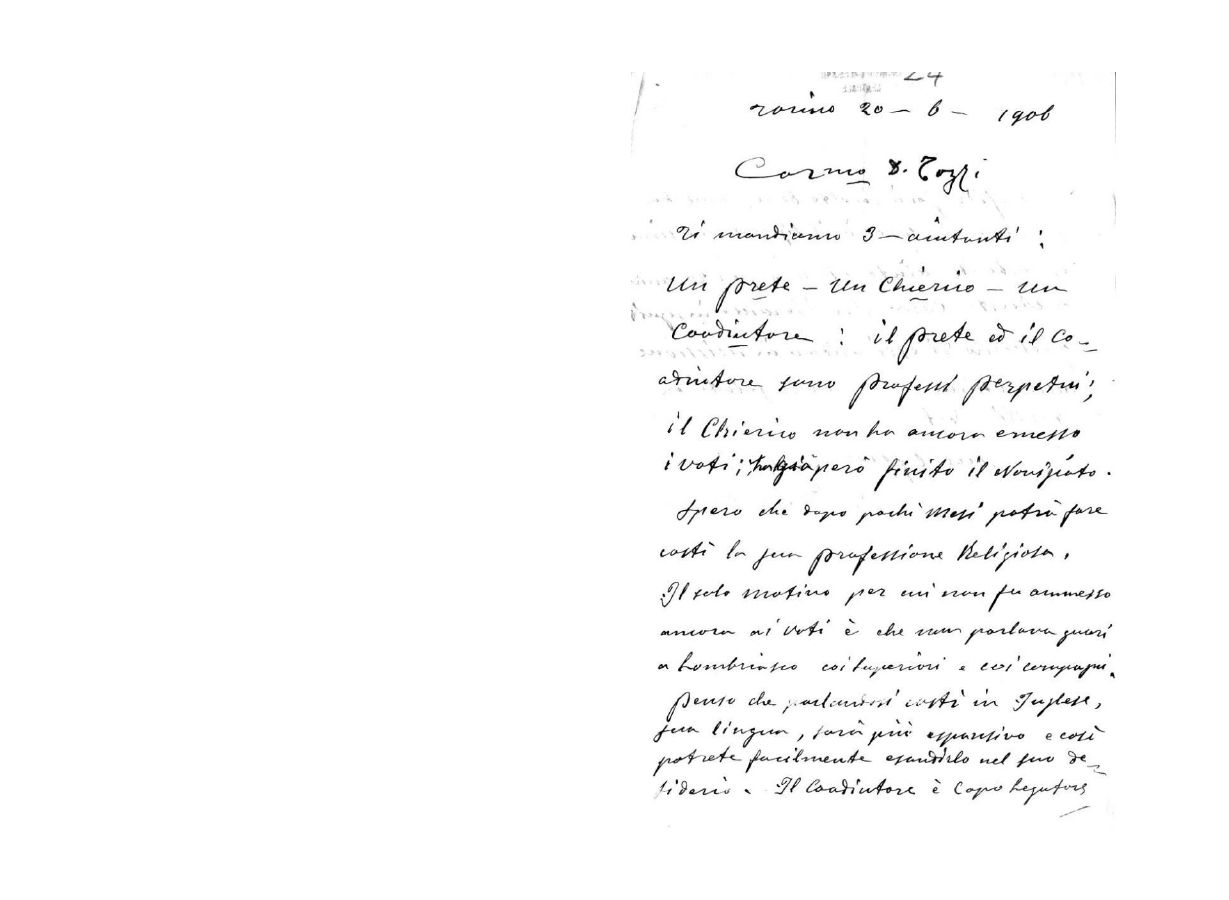 24
Torino 20 - 6 - 1906
Carmo D. Tozzi
Ti mandiamo 3 - aiutanti :
Un prete - Un Chierico - un
Coadiutore : il prete ed il Co-
adiutore sono professi perpetui;
il Chierico non ha ancora emesso
i voti; ha già però finito il Noviziato.
Spero che dopo pochi mesi potrà fare
costì la sua professione Religiosa.
Il solo motivo per cui non fu ammesso
ancora ai voti è che non parlava guari
a Lombriasco coi Superiori e coi compagni.
Penso che parlandosi costì in Inglese,
sua lingua, sarà più espansivo e così
potrete facilmente esaudirlo nel suo de-
siderio. Il Coadiutore è Capo Legatore